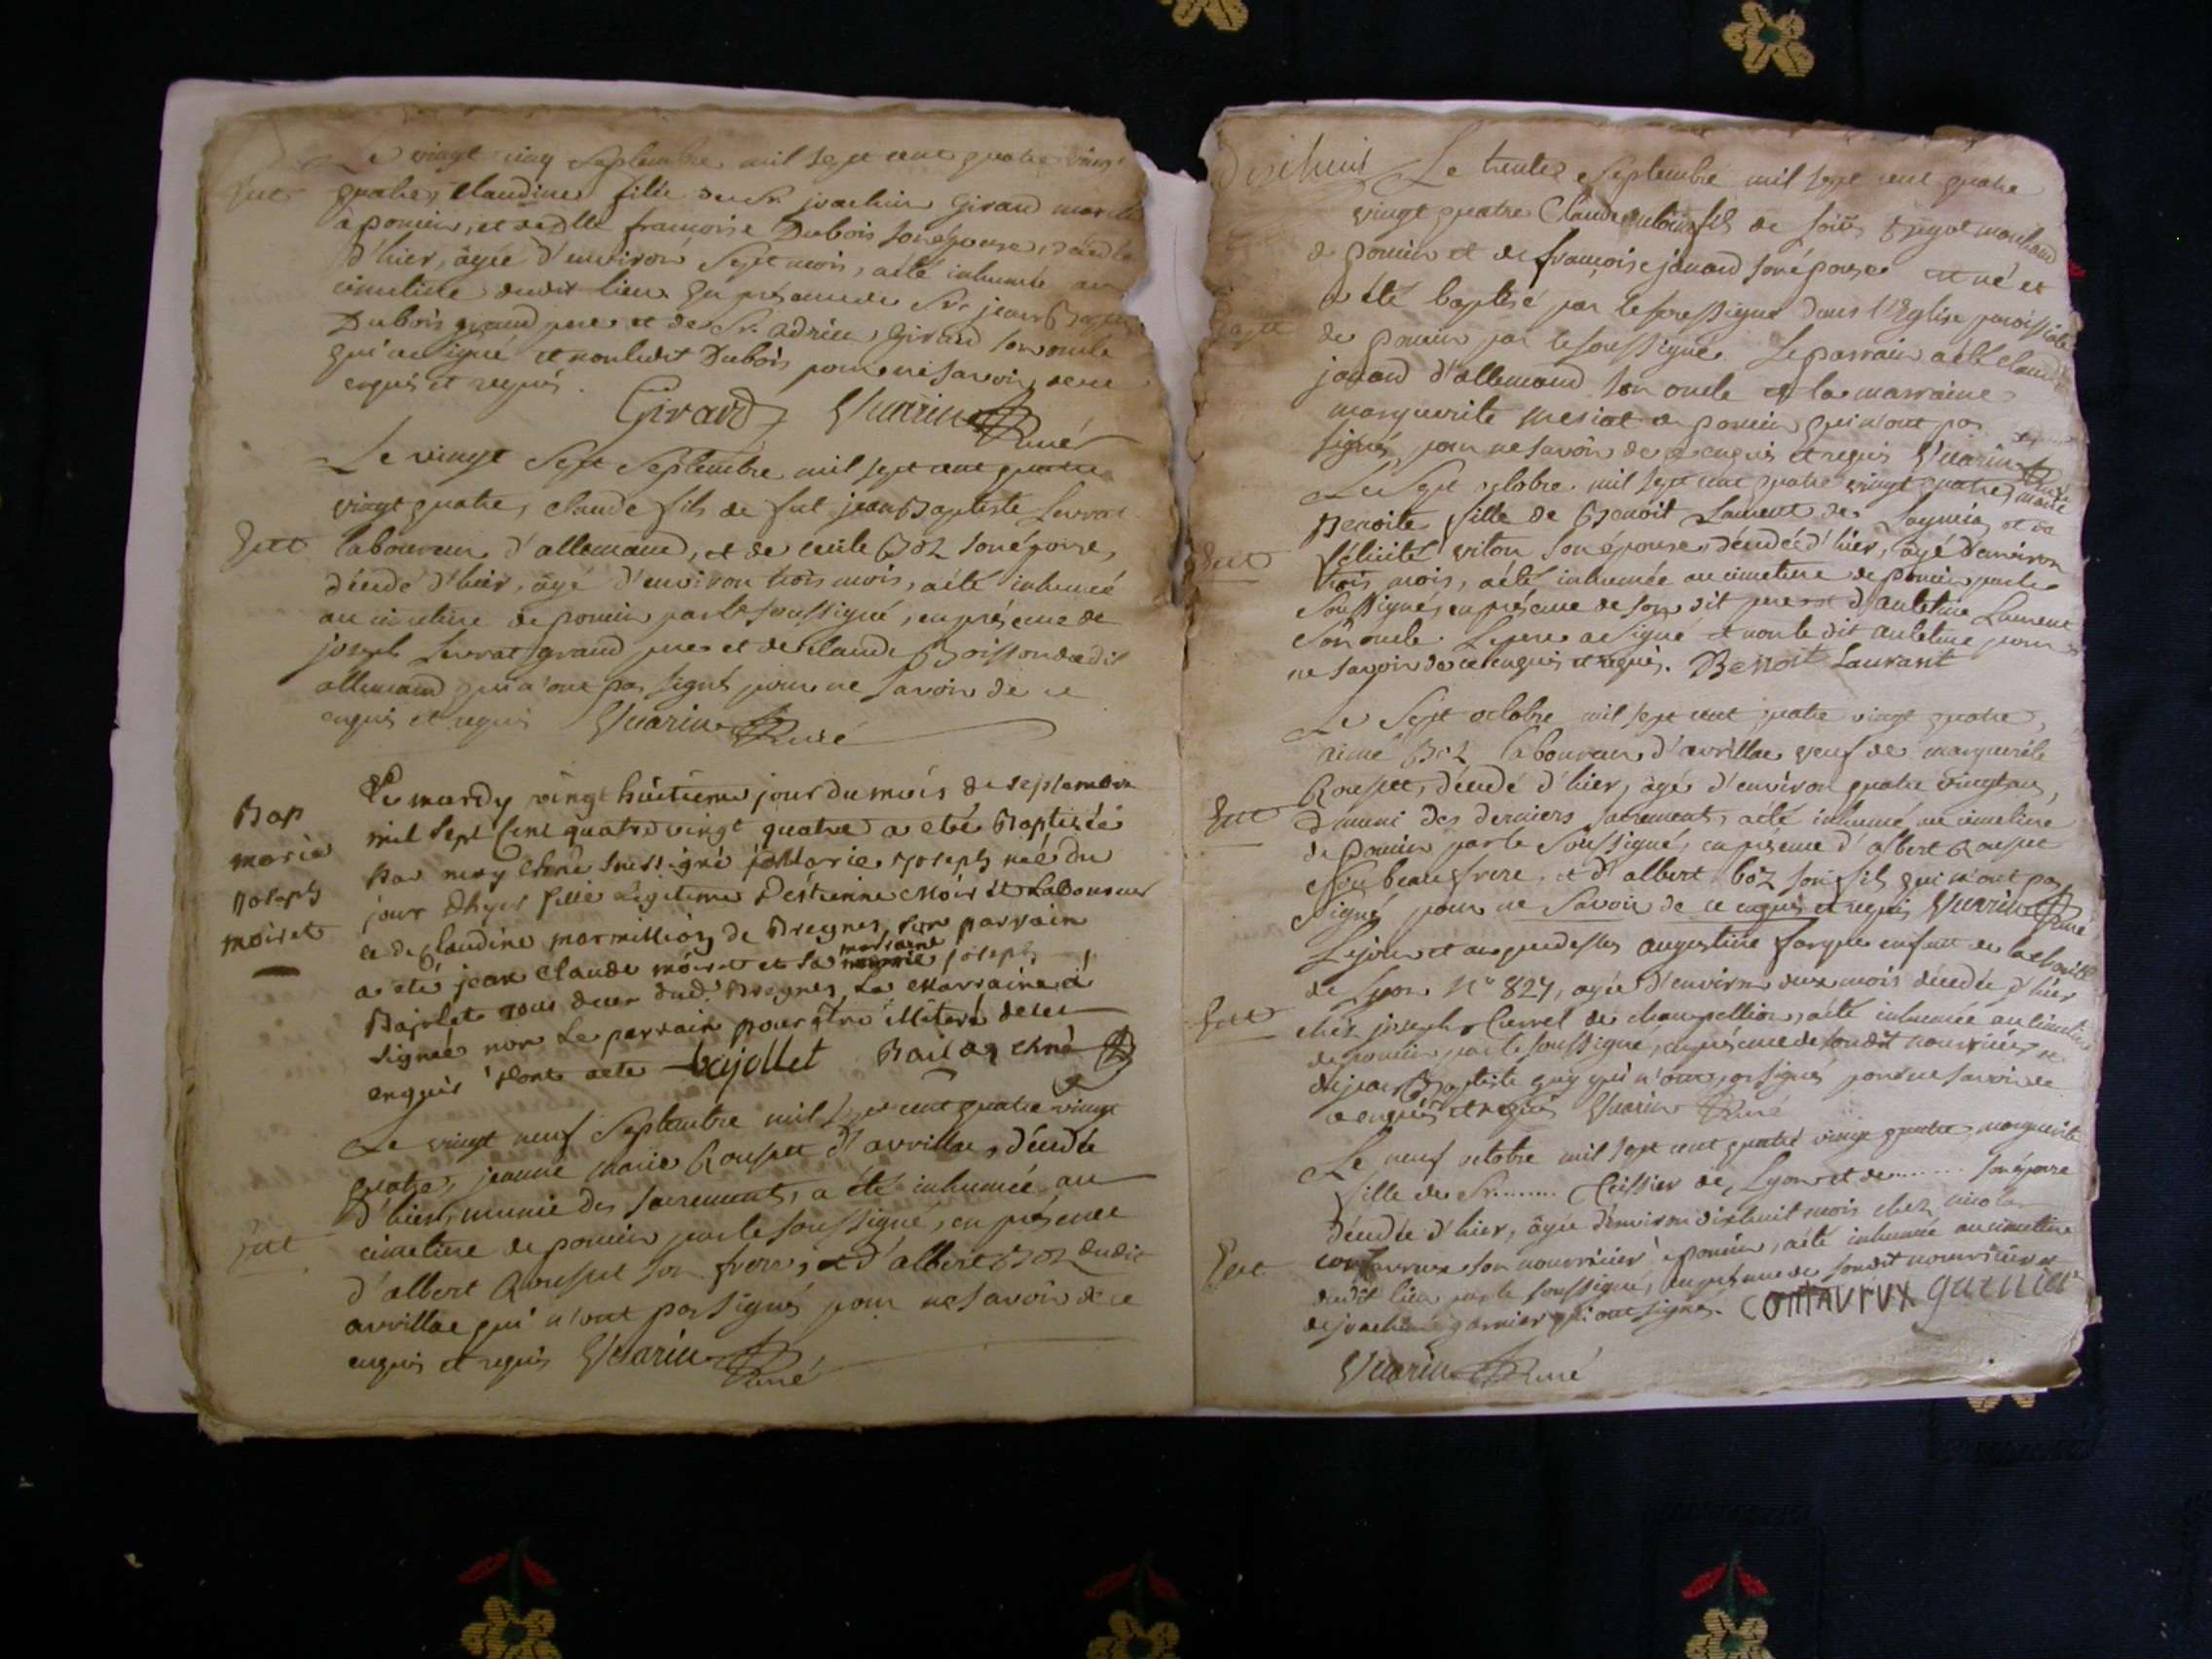 Le vingt cinq Septembre mil sept cent quatre vingt
Ent quatre, Claudine fille du Sr. joachin Girard march
à pomier, et de dlle francoise Dubois son épouse, décédée
d'hier, âgée d'environ Sept mois, a été inhumée au
cimetiere dudit lieu en présence de Sr. jean Bapt
Dubois grand pere et de Sr. adrien Girard son oncle
qui a signé et non ledit Dubois pour ne savoir de ce
enquis et requis. Girard Guarin Curé
Le vingt Sept Septembre mil sept cent quatre
vingt quatre, claude fils de fut jean Baptiste Servrat
Ent laboureur d'allemand, et de cecile Boz son épouse,
décédé d'hier, âgé d'environ trois mois, a été inhumé
au cimetiere de pomier par le soussigné, en présence de
joseph Servrat grand pere et de claude Boisson dudit
allemand qui n'ont pas signés pour ne savoir de ce
enquis et requis Guarin Curé
Bap
marie
joseph
moiret
Le mardy vingt huitieme jour du mois de septembre
mil sept cent quatre vingt quatre a eté Baptisée
par moy Curé soussigné marie joseph née du
jour d'hyer fille legitime d'estienne moiret Laboureur
et de Claudine marmillion de Bregnes, son parrain
a eté jean Claude moiret et sa marraine joseph
Bajolet tous deux dud. Bregnes, La Marraine a
signée non Le parrain pour être illiteré de ce
enquis dont acte bajollet Curé
Le vingt neuf Septembre mil sept cent quatre vingt
quatre, jeanne marie Rousset d'avrillac, décédée
d'hier, munie des sacrements, a été inhumée au
Ent cimetiere de pomier par le soussigné, en présence
d'albert Rousset son frere, et d'albert Boz dudit
avrillac qui n'ont pas signés pour ne savoir de ce
enquis et requis Guarin Curé
dixhuit
Le trente Septembre mil sept cent quatre
vingt quatre Claude fils de marchand
de pomier et de françoise janand son épouse est né et
Bapt a été baptisé par le soussigné dans l'Eglise paroissiale
de pomier par le soussigné. Le parrain a été claude
janand d'allemand son oncle et la marraine
marguerite de pomier qui n'ont pas
signés pour ne savoir de ce enquis et requis Guarin Curé
Le Sept octobre mil sept cent quatre vingt quatre, marie
Benoite fille de Benoit Laurent de et de
Ent félicité viton son épouse, décédée d'hier, âgé d'environ
trois mois, a été inhumée au cimetiere de pomier par le
soussigné, en présence de son dit pere et d'antelme Laurent
son oncle. Le pere a signé et non le dit antelme pour
ne savoir de ce enquis et requis. Benoit Laurant
Le Sept octobre mil sept cent quatre vingt quatre,
aimé Boz laboureur d'avrillac veuf de marguerite
Rousset, décédé d'hier, âgé d'environ quatre vingt ans,
Ent muni des derniers sacrements, a été inhumé au cimetiere
de pomier par le soussigné, en présence d'albert Rousset
son beau frere, et d'albert boz son fils qui n'ont pas
signé pour ne savoir de ce enquis et requis Guarin Curé
Le jour et an que dessus augustine farque enfant de la charité
de Lyon N° 827, âgée d'environ deux mois décédée d'hier
Ent chez joseph Carrel de champollion, a été inhumée au cimetiere
de pomier par le soussigné, en présence de son dit nourricier et
de jean Baptiste guy qui n'ont pas signés pour ne savoir de
ce enquis et requis Guarin Curé
Le neuf octobre mil sept cent quatre vingt quatre, marguerite
fille du Sr......... Teissier de Lyon et de......... son épouse
décédée d'hier, âgée d'environ dixhuit mois chez nicolas
Ent contavreux son nourricier à pomier, a été inhumée au cimetiere
dudit lieu par le soussigné, en présence de son dit nourricier et
de joachim garnier qui ont signés. CONTAVRUX garnier
Guarin Curé